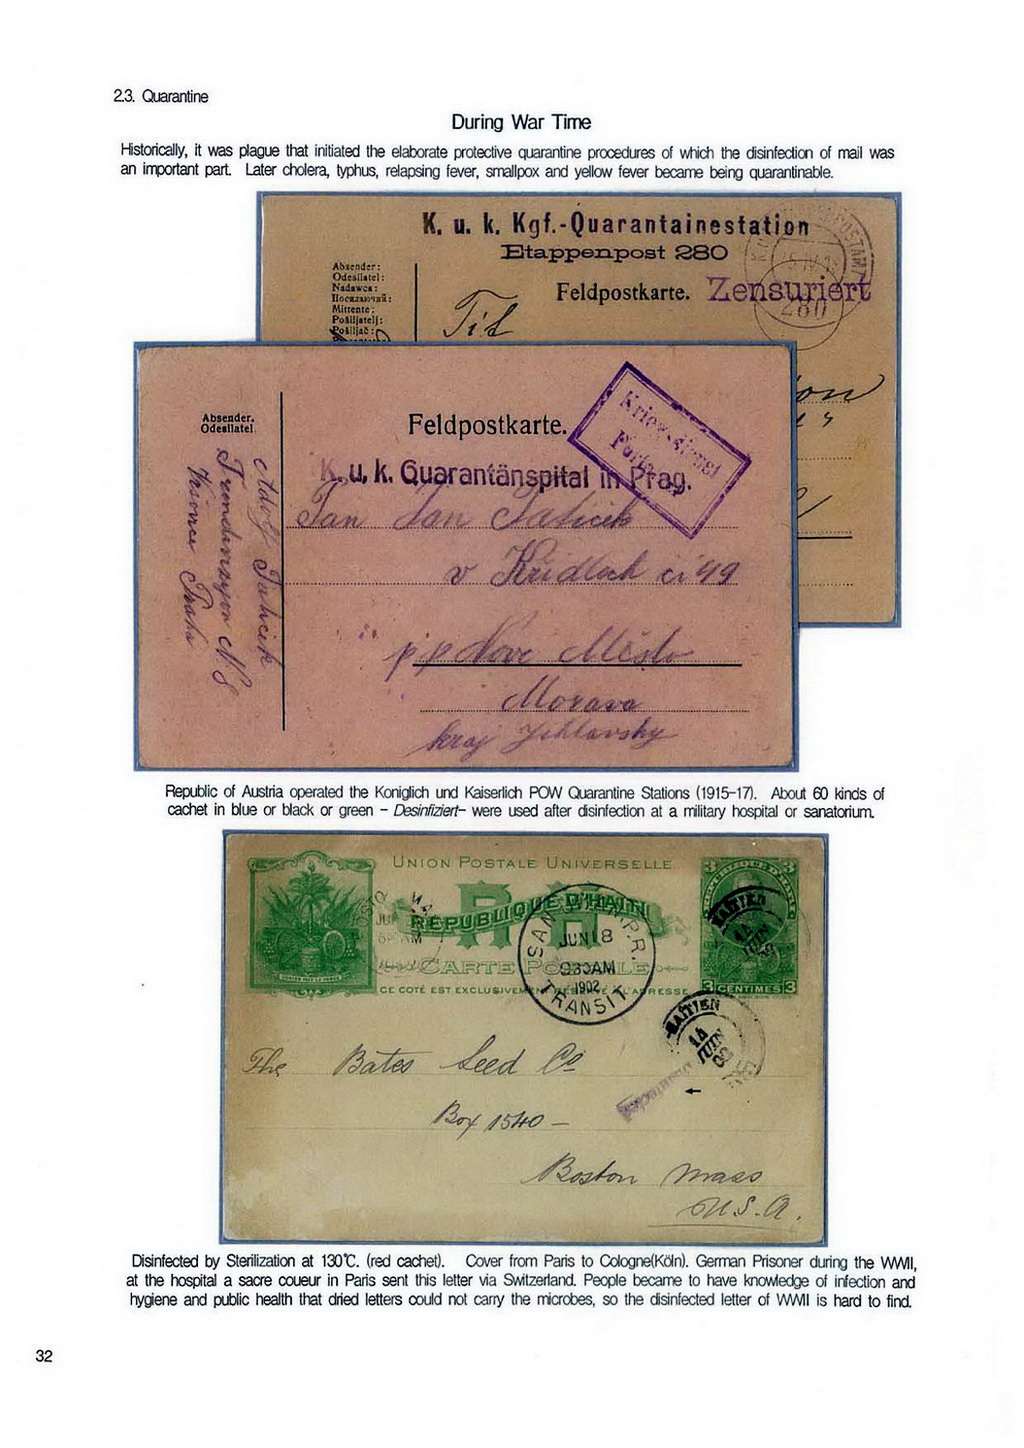 2.3. Quarantine
During War Time
Historically, it was plague that initiated the elaborate protective quarantine procedures of which the disinfection of mail was
an important part. Later cholera, typhus, relapsing fever, smallpox and yellow fever became being quarantinable.
K. u. k. Kgf.-Quarantainestation
Etappenpost 280
Absender:
Odesílatel:
Nadawca:
Посилаючий:
Mittente:
Pošiljatelj:
Pošiljač:
Feldpostkarte.
Zensuriert
280
Tit
Absender.
Odesílatel
Feldpostkarte.
Kriegsdienst
K. u. k. Quarantänspital in Prag.
Adolf
Praha
Jan Jan
v Křidlech či 49
p p Nové Město
Morava
kraj Jihlavsky
Republic of Austria operated the Koniglich und Kaiserlich POW Quarantine Stations (1915-17). About 60 kinds of
cachet in blue or black or green - Desinfiziert- were used after disinfection at a military hospital or sanatorium.
UNION POSTALE UNIVERSELLE
RÉPUBLIQUE D'HAITI
RH
CARTE POSTALE
CE COTÉ EST EXCLUSIVEMENT RÉSERVÉ À L'ADRESSE
3 CENTIMES 3
SAN JUAN, P.R.
JUN 18
930AM
1902
TRANSIT
HAITIEN
14
JUIN
The Bates Seed Co
Box 1540 —
Boston Mass
U.S.A.
Disinfected by Sterilization at 130℃. (red cachet). Cover from Paris to Cologne(Köln). German Prisoner during the WWII,
at the hospital a sacre coueur in Paris sent this letter via Switzerland. People became to have knowledge of infection and
hygiene and public health that dried letters could not carry the microbes, so the disinfected letter of WWII is hard to find.
32